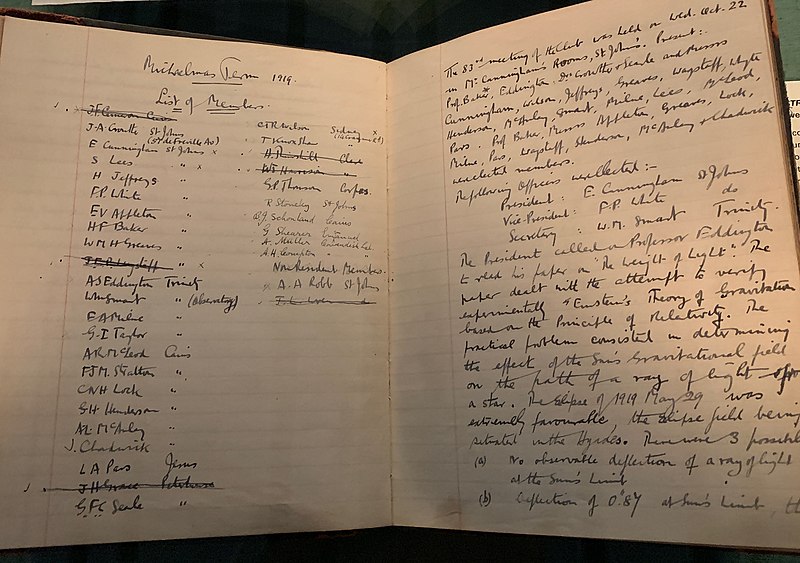 Michaelmas Term 1919.
List of Members.
J.F. Cameron Caius
J.A. Crowther St Johns
E Cunningham St Johns
S Lees "
H Jeffreys "
F.P. White "
EV Appleton "
HF Baker "
WMH Greaves "
AS Eddington Trinity
WM Smart " (Observatory)
EA Milne "
G.I Taylor "
AR McLeod Caius
FJM Stratton "
CNH Lock "
GH Henderson "
AL McAuley "
J. Chadwick "
LA Pars Jesus
J H Grace Peterhouse
G.F.C Searle "
CTR Wilson Sidney
H Thirkill Clare
G.P. Thomson Corpus
R Stoneley St Johns
B.J Schonland Caius
G Shearer Emmanuel
A. Muller Cavendish Lab.
A.H. Compton " "
Non Resident Members
A A Robb St Johns
The 83rd meeting of the Club was held on Wed. Oct. 22
in Mr Cunningham's Rooms, St John's. Present:-
Prof. Baker, Eddington. Drs Crowther & Searle and Messrs
Cunningham, Wilson, Jeffreys, Greaves, Wagstaff, Whyte
Henderson, McAuley, Smart, Milne, Lees, McLeod,
Pars. Prof Baker, Messrs Appleton, Greaves, Lock,
Milne, Pars, Wagstaff, Henderson, McAuley & Chadwick
were elected members.
The following Officers were elected:-
President: E. Cunningham St Johns
Vice-President: F.P. White do
Secretary: W.M. Smart Trinity.
The President called on Professor Eddington
to read his paper on "The Weight of Light". The
paper dealt with the attempt to verify
experimentally Einstein's Theory of Gravitation
based on the Principle of Relativity. The
practical problem consisted in determining
the effect of the Sun's Gravitational field
on the path of a ray of light from
a star. The Eclipse of 1919 May 29 was
extremely favourable, the Eclipse field being
situated in the Hyades. There were 3 possibil
(a) No observable deflection of a ray of light
at the Sun's Limb
(b) Deflection of 0".87 at Sun's Limb, th